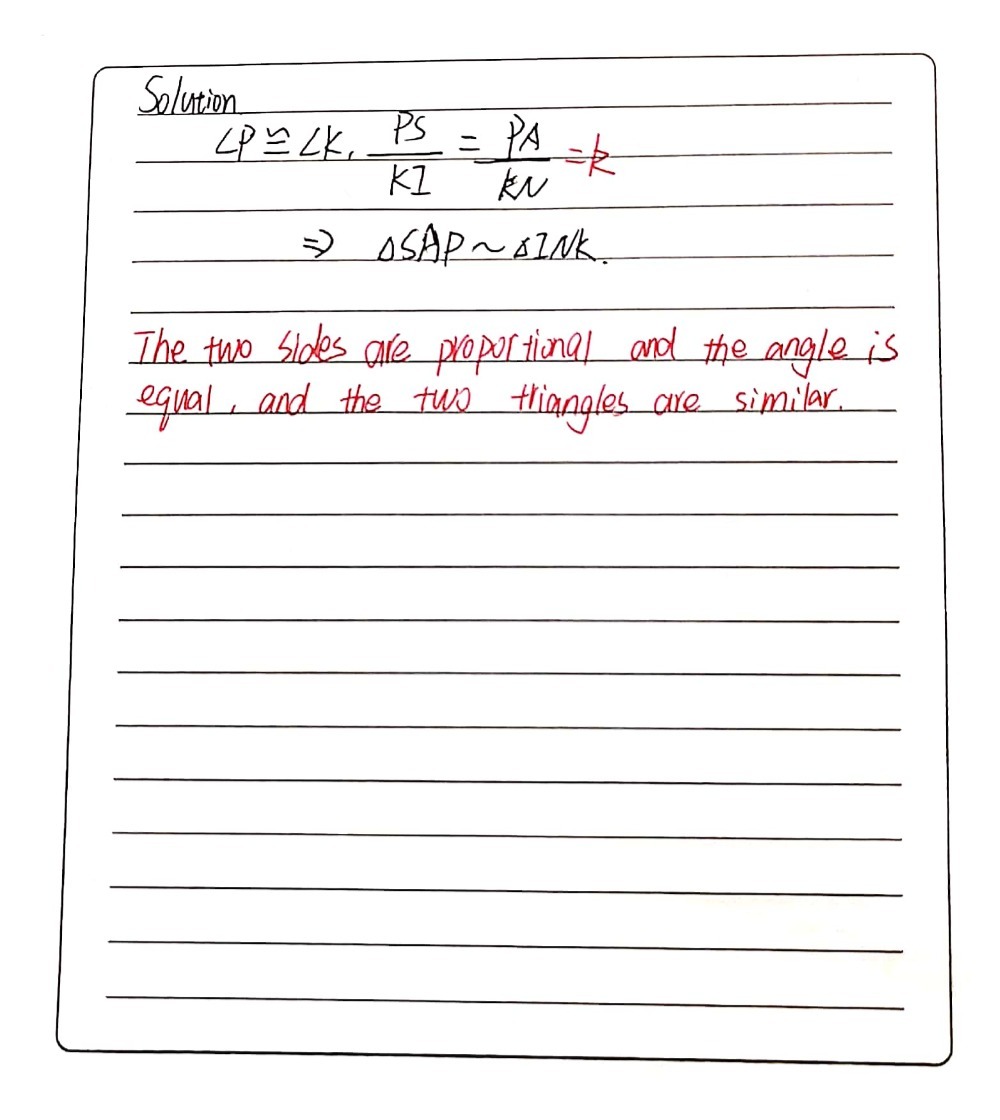 Solution
∠P ≅ ∠K, PS/KI = PA/KN = k
⇒ △SAP ~ △INK.
The two sides are proportional and the angle is
equal, and the two triangles are similar.